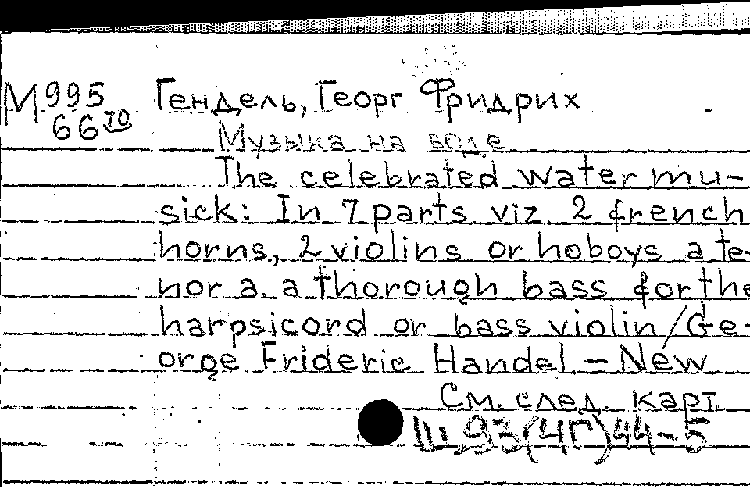 М 995 Гендель, Георг Фридрих
66 70
Музыка на воде
The celebrated water mu-
sick: In 7 parts viz. 2 french
horns, 2 violins or hoboys a te-
nor a. a thorough bass for the
harpsicord or bass violin / Ge-
orge Frideric Handel. - New
См. след. карт.
Ш 93(4Г)44-5